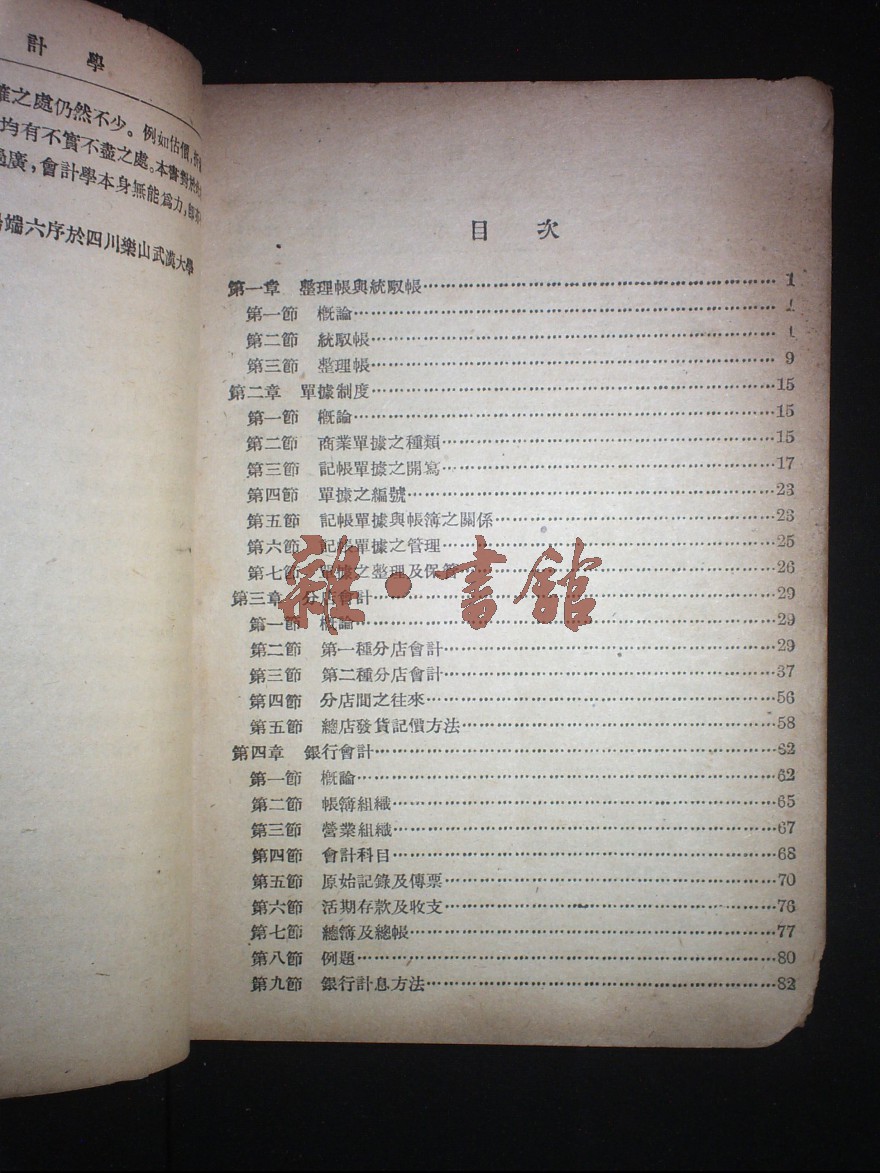 計學
之處仍然不少。例如估價，折
均有不實不盡之處。本書對於
廣，會計學本身無能爲力，
端六序於四川樂山武漢大學
目次
第一章 整理帳與統馭帳……1
第一節 概論……1
第二節 統馭帳……1
第三節 整理帳……9
第二章 單據制度……15
第一節 概論……15
第二節 商業單據之種類……15
第三節 記帳單據之開寫……17
第四節 單據之編號……23
第五節 記帳單據與帳簿之關係……23
第六節 記帳單據之管理……25
第七節 單據之整理及保管……26
第三章 分店會計……29
第一節 概論……29
第二節 第一種分店會計……29
第三節 第二種分店會計……37
第四節 分店間之往來……56
第五節 總店發貨記價方法……58
第四章 銀行會計……62
第一節 概論……62
第二節 帳簿組織……65
第三節 營業組織……67
第四節 會計科目……68
第五節 原始記錄及傳票……70
第六節 活期存款及收支……76
第七節 總簿及總帳……77
第八節 例題……80
第九節 銀行計息方法……82
雜·書館